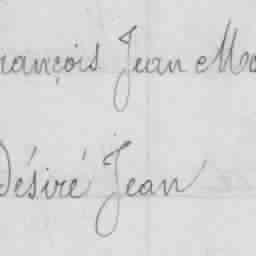 rançois Jean Ma
Désiré Jean